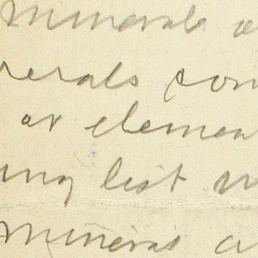 minerals
erals som
or elemen
ing list
mineral a